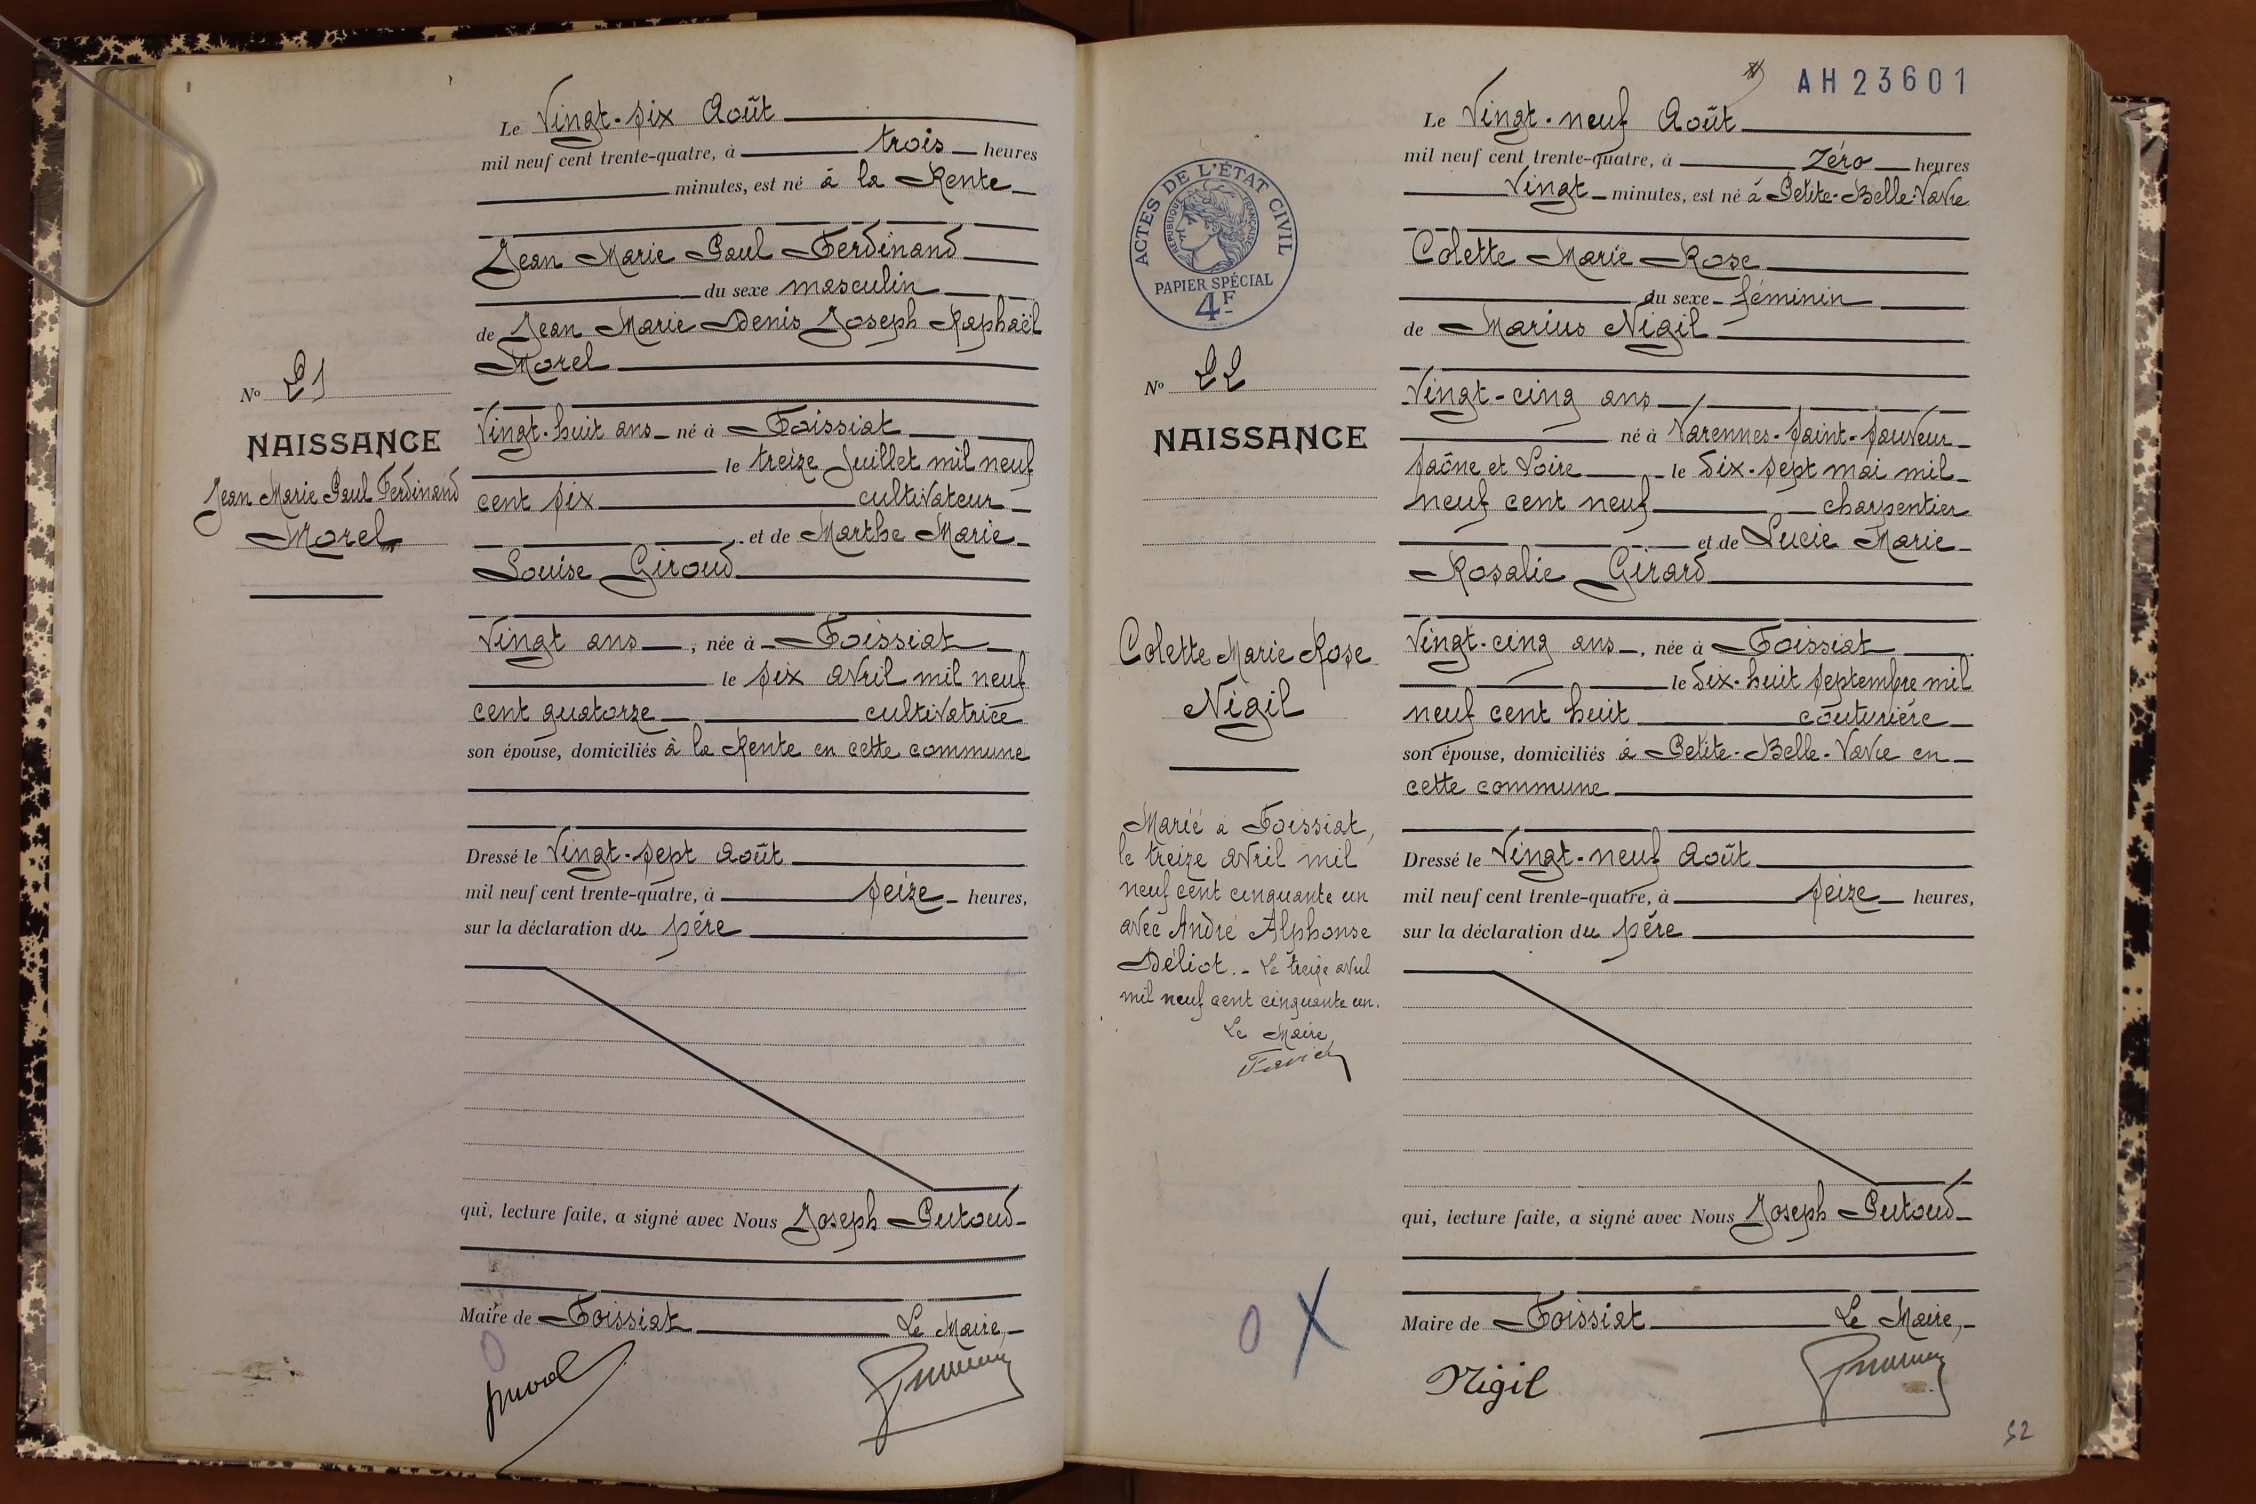 Le Vingt-six Août
mil neuf cent trente-quatre, à trois heures
minutes, est né à la Rente
Jean Marie Paul Ferdinand
du sexe masculin
de Jean Marie Denis Joseph Raphaël
Morel
No 21
Vingt-huit ans né à Foissiat
NAISSANCE
le treize Juillet mil neuf
Jean Marie Paul Ferdinand
cent six cultivateur
Morel
et de Marthe Marie
Louise Giroud
Vingt ans, née à Foissiat
le six avril mil neuf
cent quatorze cultivatrice
son épouse, domiciliés à la Rente en cette commune
Dressé le Vingt-sept Août
mil neuf cent trente-quatre, à seize heures,
sur la déclaration du père
qui, lecture faite, a signé avec Nous Joseph Putoud
Maire de Foissiat Le Maire,
Morel
AH 23601
Le Vingt-neuf Août
mil neuf cent trente-quatre, à Zéro heures
Vingt minutes, est né à Petite-Belle-Vavre
ACTES DE L'ÉTAT CIVIL
RÉPUBLIQUE FRANÇAISE
PAPIER SPÉCIAL
4F
Colette Marie Rose
du sexe féminin
de Marius Nigil
No 22
Vingt-cinq ans
NAISSANCE
né à Varennes-Saint-Sauveur
Saône et Loire le dix-sept mai mil
neuf cent neuf charpentier
et de Lucie Marie
Rosalie Girard
Colette Marie Rose
Nigil
Vingt-cinq ans, née à Foissiat
le dix-huit septembre mil
neuf cent huit couturière
son épouse, domiciliés à Petite-Belle-Vavre en
cette commune
Mariée à Foissiat,
le treize avril mil
neuf cent cinquante un
avec André Alphonse
Déliot. - Le treize avril
mil neuf cent cinquante un.
Le Maire
Dressé le Vingt-neuf Août
mil neuf cent trente-quatre, à seize heures,
sur la déclaration du père
qui, lecture faite, a signé avec Nous Joseph Putoud
Maire de Foissiat Le Maire,
Nigil
52